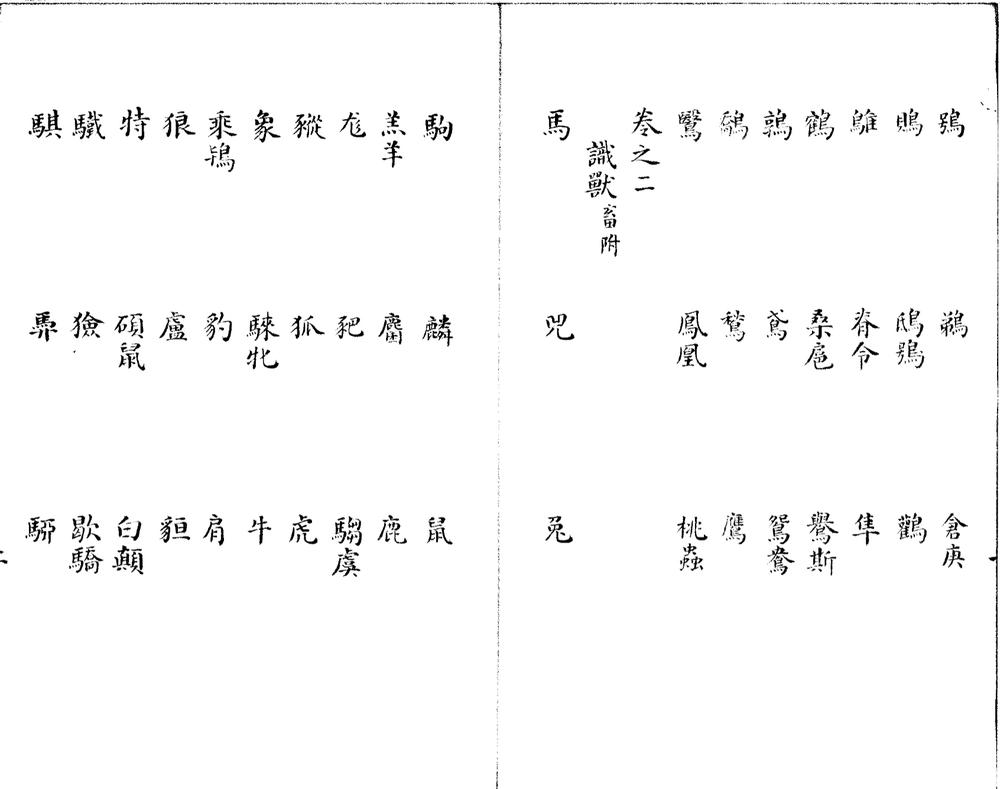 鴞 鵜 倉庚
鵙 鴟鴞 鸛
鵻 脊令 隼
鶴 桑扈 鸒斯
鶉 鳶 鴛鴦
鷮 鶖 鷹
鷖 鳳凰 桃蟲
卷之二
識獸畜附
馬 兕 兔
駒 麟 鼠
羔羊 麕 鹿
尨 豝 騶虞
豵 狐 虎
象 騋牝 牛
乘鴇 豹 肩
狼 盧 貆
特 碩鼠 白顛
驖 獫 歇驕
騏 馵 駵